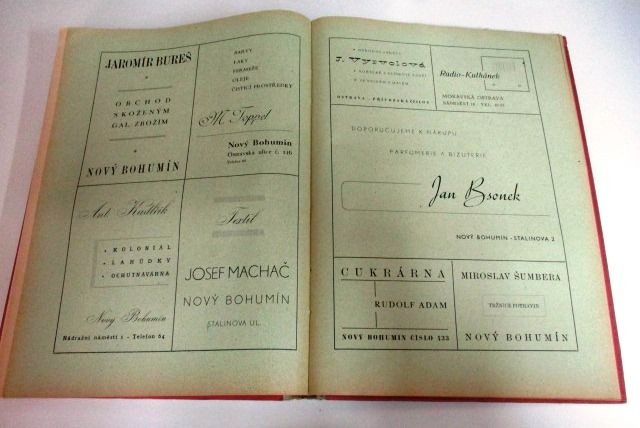 JAROMÍR BUREŠ
OBCHOD
S KOŽENÝM
GAL. ZBOŽÍM
NOVÝ BOHUMÍN
BARVY
LAKY
FERMEŽE
OLEJE
ČISTICÍ PROSTŘEDKY
M. Toppel
Nový Bohumín
Ostravská ulice č. 146
Ant. Kudlřik
KOLONIAL
LAHŮDKY
OCHUTNÁVÁRNA
Nový Bohumín
Nádražní náměstí 1 - Telefon 64
Textil
JOSEF MACHAČ
NOVÝ BOHUMÍN
STALINOVA UL.
J. Vyvolová
OSTRAVA - PŘÍVOZSKÁ
Radio-Kulhánek
MORAVSKÁ OSTRAVA
DOPORUČUJEME K NÁKUPU
PARFUMERIE A BIŽUTERIE
Jan Bsonek
NOVÝ BOHUMÍN - STALINOVA 2
CUKRÁRNA
RUDOLF ADAM
NOVÝ BOHUMÍN ČÍSLO 133
MIROSLAV ŠUMBERA
TRŽNICE POTRAVIN
NOVÝ BOHUMÍN